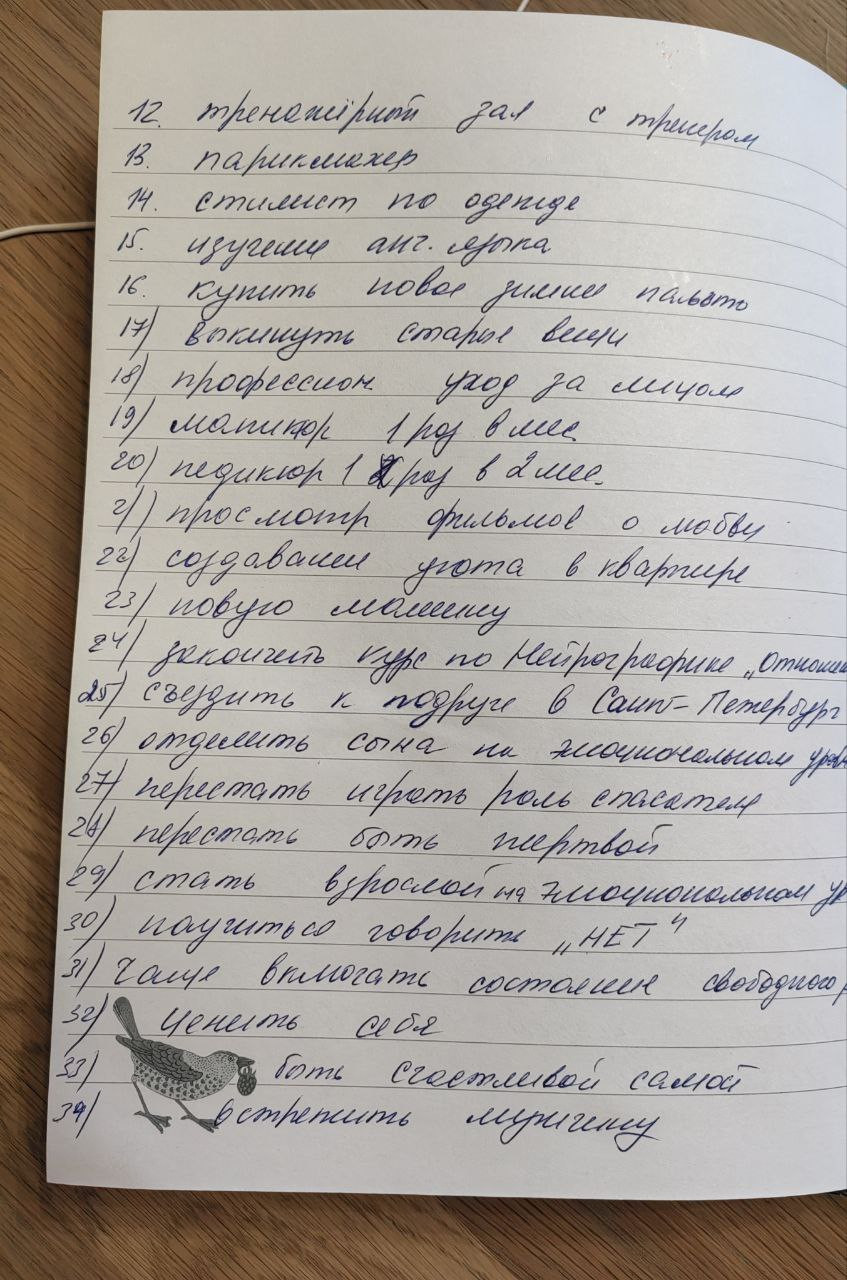 12. тренажёрный зал с тренером
13. парикмахер
14. стилист по одежде
15. изучение анг. языка
16. купить новое зимнее пальто
17) выкинуть старые вещи
18) профессион. уход за лицом
19) маникюр 1 раз в мес.
20) педикюр 1 раз в 2 мес.
21) просмотр фильмов о любви
22) создавание уюта в квартире
23) новую машину
24) закончить курс по Нейрографике „Отношен
25) съездить к подруге в Санкт-Петербург
26) отделить сына на эмоциональном уровн
27) перестать играть роль спасателя
28) перестать быть жертвой
29) стать взрослой на эмоциональном ур
30) научиться говорить „НЕТ"
31) Чаще включать состояние свободного
32) Ценить себя
33) быть счастливой самой
34) встретить мужчину